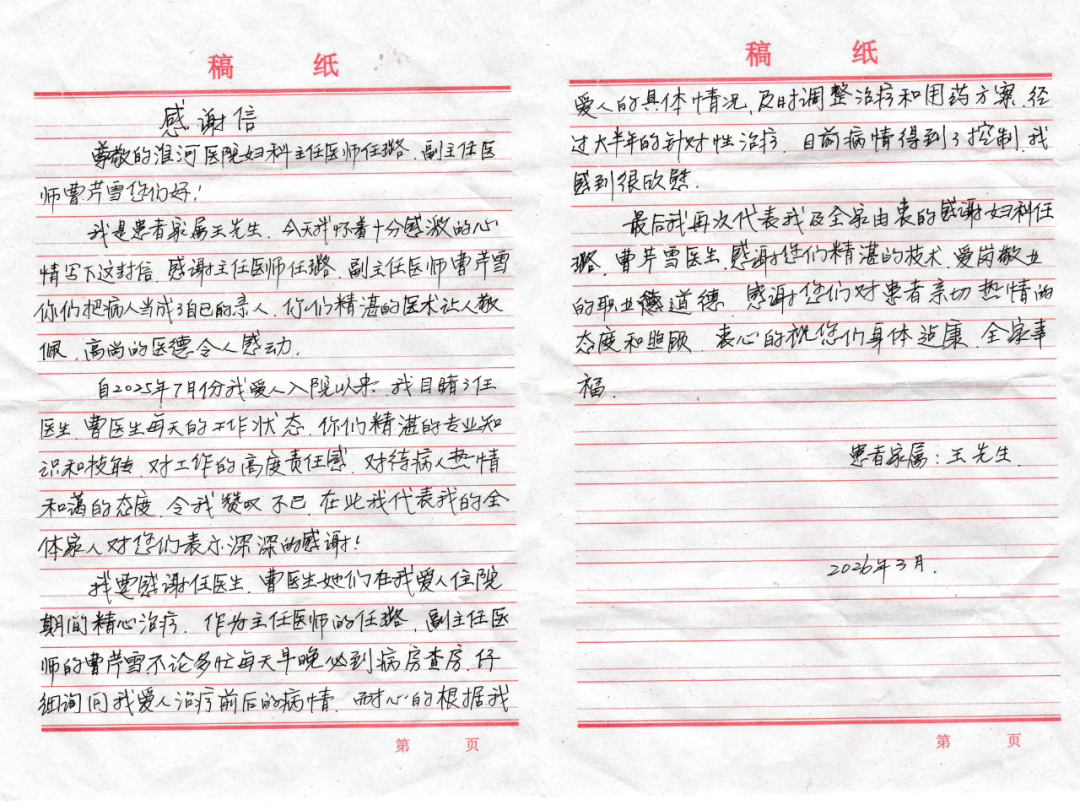 稿 纸
感谢信
尊敬的淮河医院妇科主任医师任璐、副主任医
师曹芹雪您们好！
我是患者家属王先生、今天我怀着十分感激的心
情写下这封信、感谢主任医师任璐、副主任医师曹芹雪
你们把病人当成了自己的亲人、你们精湛的医术让人敬
佩、高尚的医德令人感动.
自2025年7月份我爱人入院以来、我目睹了任
医生、曹医生每天的工作状态、你们精湛的专业知
识和技能、对工作的高度责任感、对待病人热情
和蔼的态度、令我赞叹不已、在此我代表我的全
体家人对您们表示深深的感谢！
我要感谢任医生、曹医生她们在我爱人住院
期间精心治疗、作为主任医师的任璐、副主任医
师的曹芹雪不论多忙每天早晚必到病房查房、仔
细询问我爱人治疗前后的病情、耐心的根据我
第 页
稿 纸
爱人的具体情况、及时调整治疗和用药方案、经
过大半年的针对性治疗、目前病情得到了控制、我
感到很欣慰.
最后我再次代表我及全家由衷的感谢妇科任
璐、曹芹雪医生、感谢您们精湛的技术、爱岗敬业
的职业道德、感谢您们对患者亲切热情的
态度和照顾、衷心的祝您们身体健康、全家幸
福.
患者家属：王先生.
2026年3月.
第 页